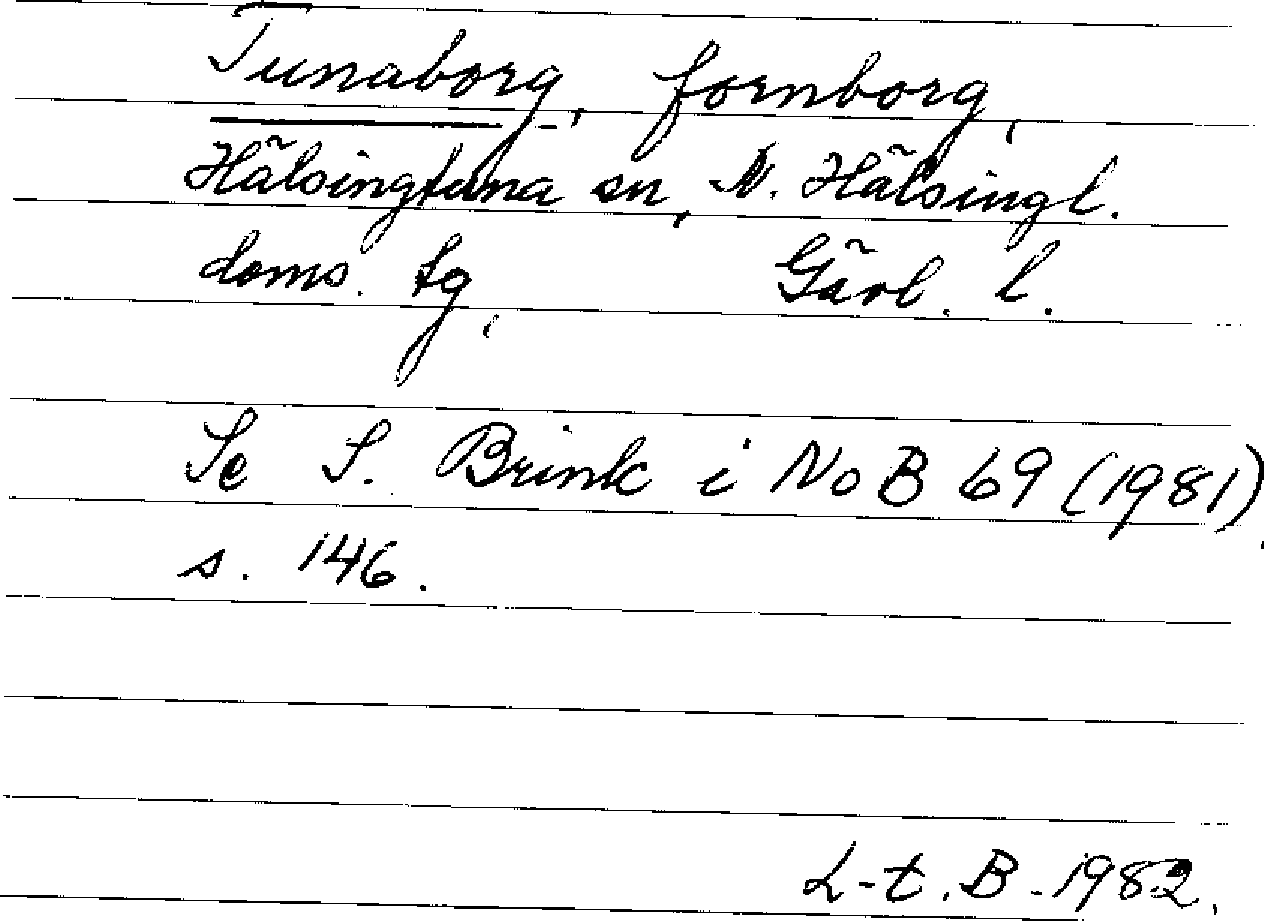 Tunaborg, fornborg,
Hälsingtuna sn, N. Hälsingl.
doms. tg, Gävl. l.
Se S. Brink i NoB 69 (1981),
s. 146.
L-t. B. 1982.